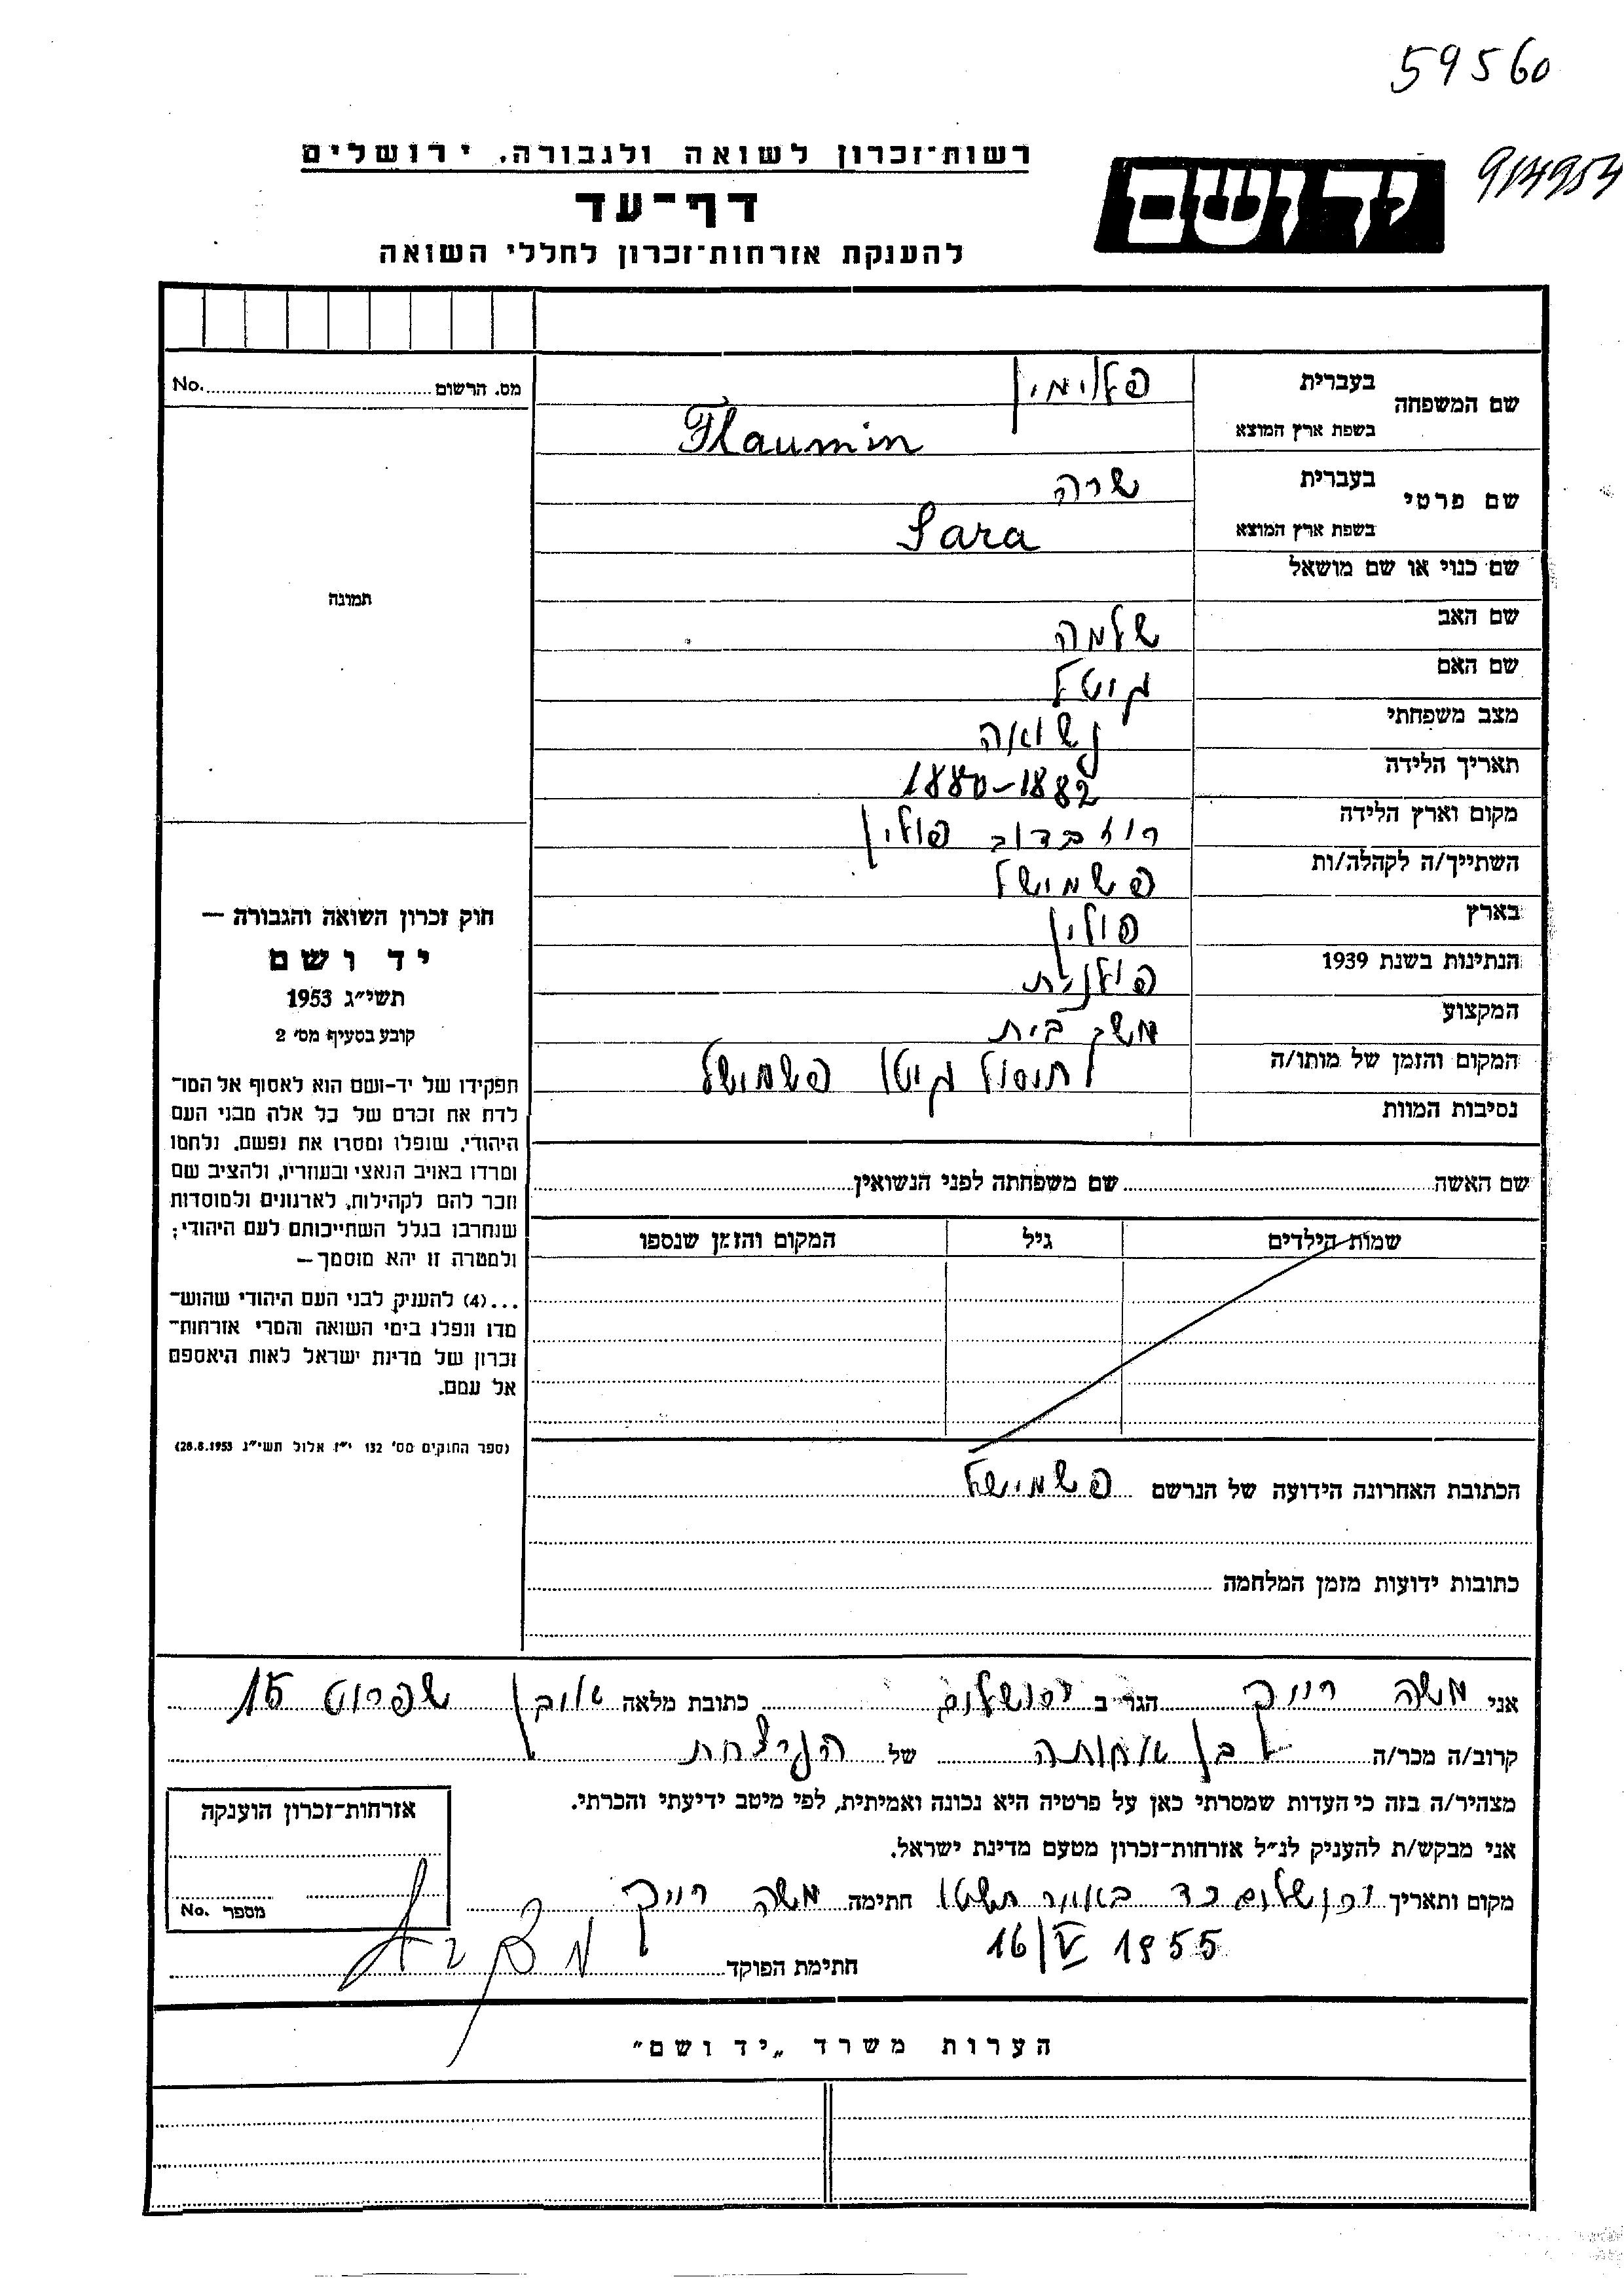 59560
רשות-זכרון לשואה ולגבורה, ירושלים
יד ושם
דף-עד
להענקת אזרחות-זכרון לחללי השואה
מס. הרשום No.
שם המשפחה
בעברית פלוימין
בשפת ארץ המוצא Flaumin
שם פרטי
בעברית שרה
בשפת ארץ המוצא Sara
שם כנוי או שם מושאל
שם האב שלמה
שם האם גיטל
מצב משפחתי נשואה
תאריך הלידה 1880-1882
מקום וארץ הלידה רוזבדוב פולין
השתייך/ה לקהלה/ות פשמישל
בארץ פולין
הנתינות בשנת 1939 פולנית
המקצוע משק בית
המקום והזמן של מותו/ה חיסול גיטו פשמישל
נסיבות המוות
תמונה
חוק זכרון השואה והגבורה —
יד ושם
תשי״ג 1953
קובע בסעיף מס׳ 2
תפקידו של יד-ושם הוא לאסוף אל המו־
לדת את זכרם של כל אלה מבני העם
היהודי, שנפלו ומסרו את נפשם, נלחמו
ומרדו באויב הנאצי ובעוזריו, ולהציב שם
וזכר להם לקהילות, לארגונים ולמוסדות
שנחרבו בגלל השתייכותם לעם היהודי;
ולמטרה זו יהא מוסמך—
...(4) להעניק לבני העם היהודי שהוש־
מדו ונפלו בימי השואה והמרי אזרחות־
זכרון של מדינת ישראל לאות היאספם
אל עמם.
(ספר החוקים מס׳ 132 י״ז אלול תשי״ג 28.8.1953)
שם האשה שם משפחתה לפני הנשואין
שמות הילדים גיל המקום והזמן שנספו
הכתובת האחרונה הידועה של הנרשם פשמישל
כתובות ידועות מזמן המלחמה
אני משה הגר ב ירושלים כתובת מלאה אובן שפרוט 15
קרוב/ה מכר/ה בן אחותה של הנרצחת
מצהיר/ה בזה כי העדות שמסרתי כאן על פרטיה היא נכונה ואמיתית, לפי מיטב ידיעתי והכרתי.
אני מבקש/ת להעניק לנ״ל אזרחות-זכרון מטעם מדינת ישראל.
מקום ותאריך ירושלים כד באייר תשטו חתימה משה
16/V 1955
חתימת הפוקד
אזרחות-זכרון הוענקה
מספר No.
הערות משרד „יד ושם״